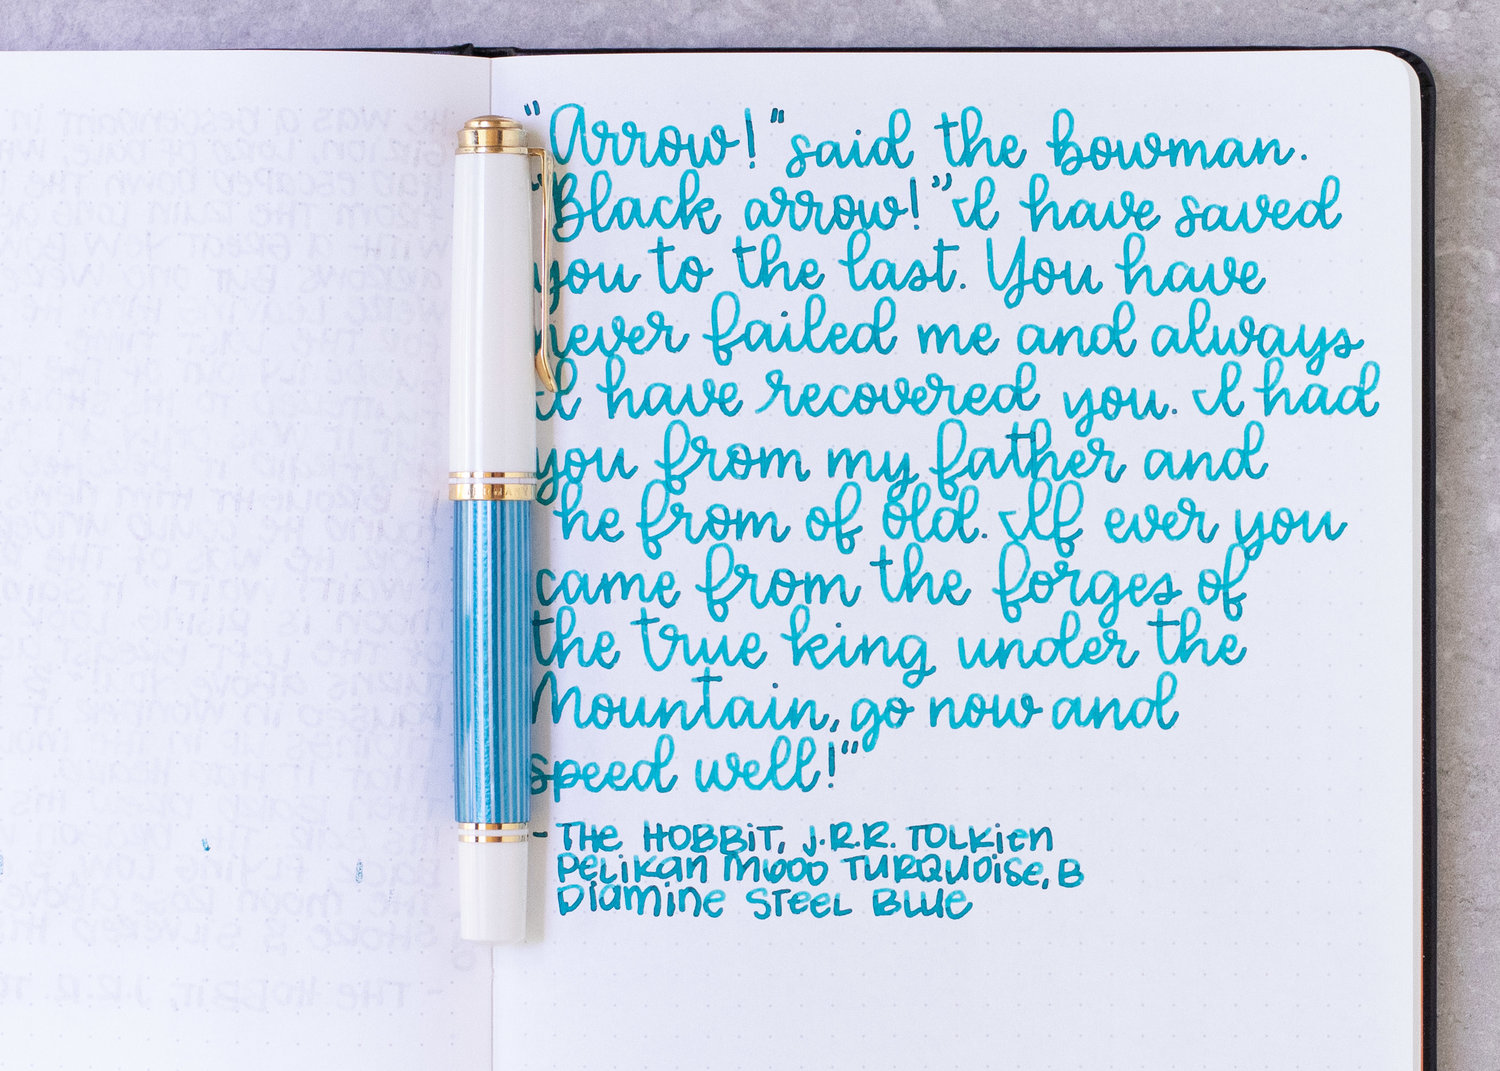 "Arrow!" said the bowman.
"Black arrow!" I have saved
you to the last. You have
never failed me and always
I have recovered you. I had
you from my father and
he from of old. If ever you
came from the forges of
the true king under the
Mountain, go now and
speed well!"
- THE HOBBIT, J.R.R. TOLKIEN
PELIKAN M600 TURQUOISE, B
DIAMINE STEEL BLUE